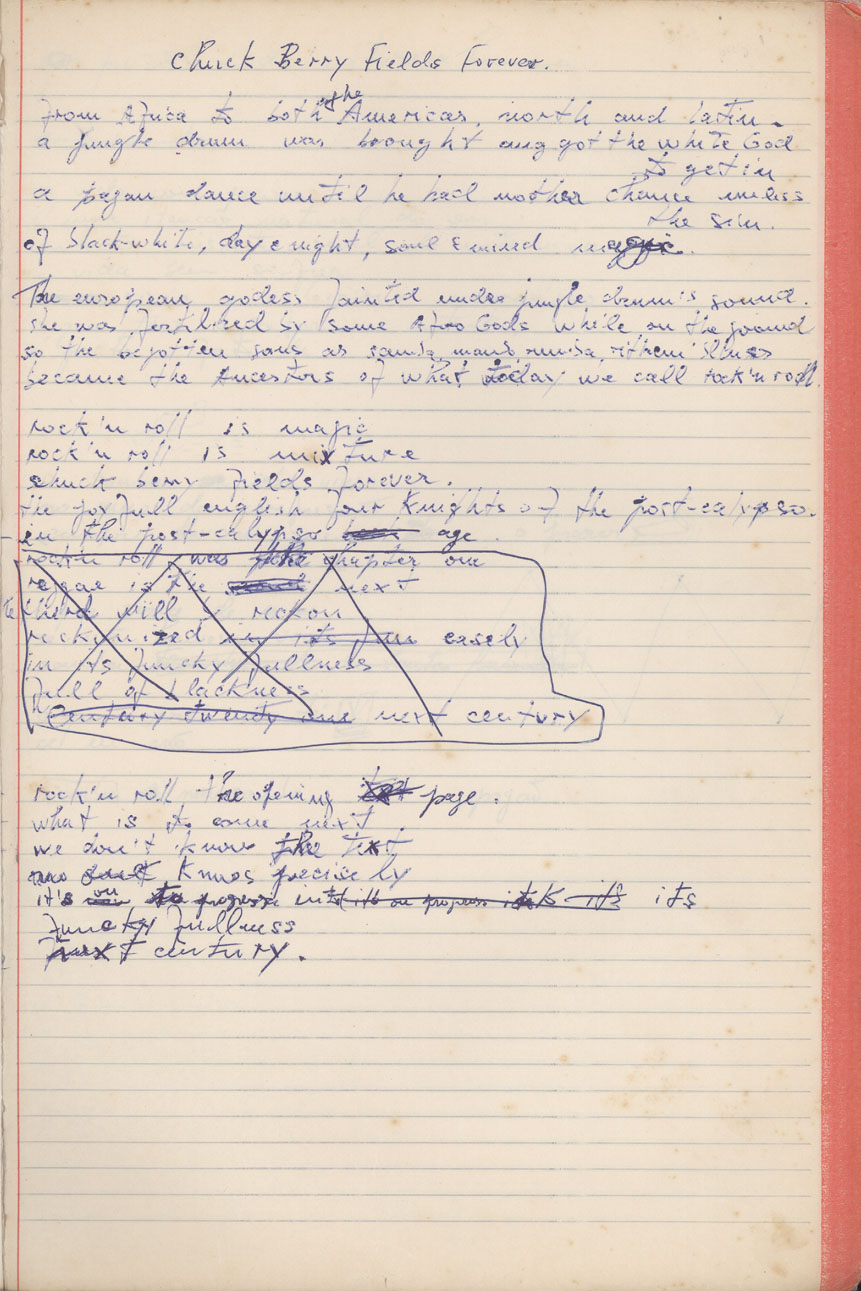 Chuck Berry Fields Forever.
From Africa to both of the Americas, north and latin
a jungle drum was brought and got the white God
to get in
a pagan dance until he had nother chance unless
the sin.
of black-white, day e night, soul & mind magic.
The european godess fainted under jungle drum's sound.
she was fertilized by some Afro Gods while on the ground
so the begotten sons as samba, mambo, rumba, rithem'blues
became the Ancestors of what today we call rock'n roll.
rock'n roll is magic
rock'n roll is mixture
chuck berry fields forever.
the joyfull english four Knights of the post-calypso.
in the post-calypso age
rock'n roll was the chapter one
reggae is the next
the third will be reckon
reckonized in its fun easely
in its funcky fullness
full of blackness
Century twenty one next century
rock'n roll the opening text page.
what is to come next
we don't know the text
no one knows precisely
it's on progress its
funcky fullness
next century.